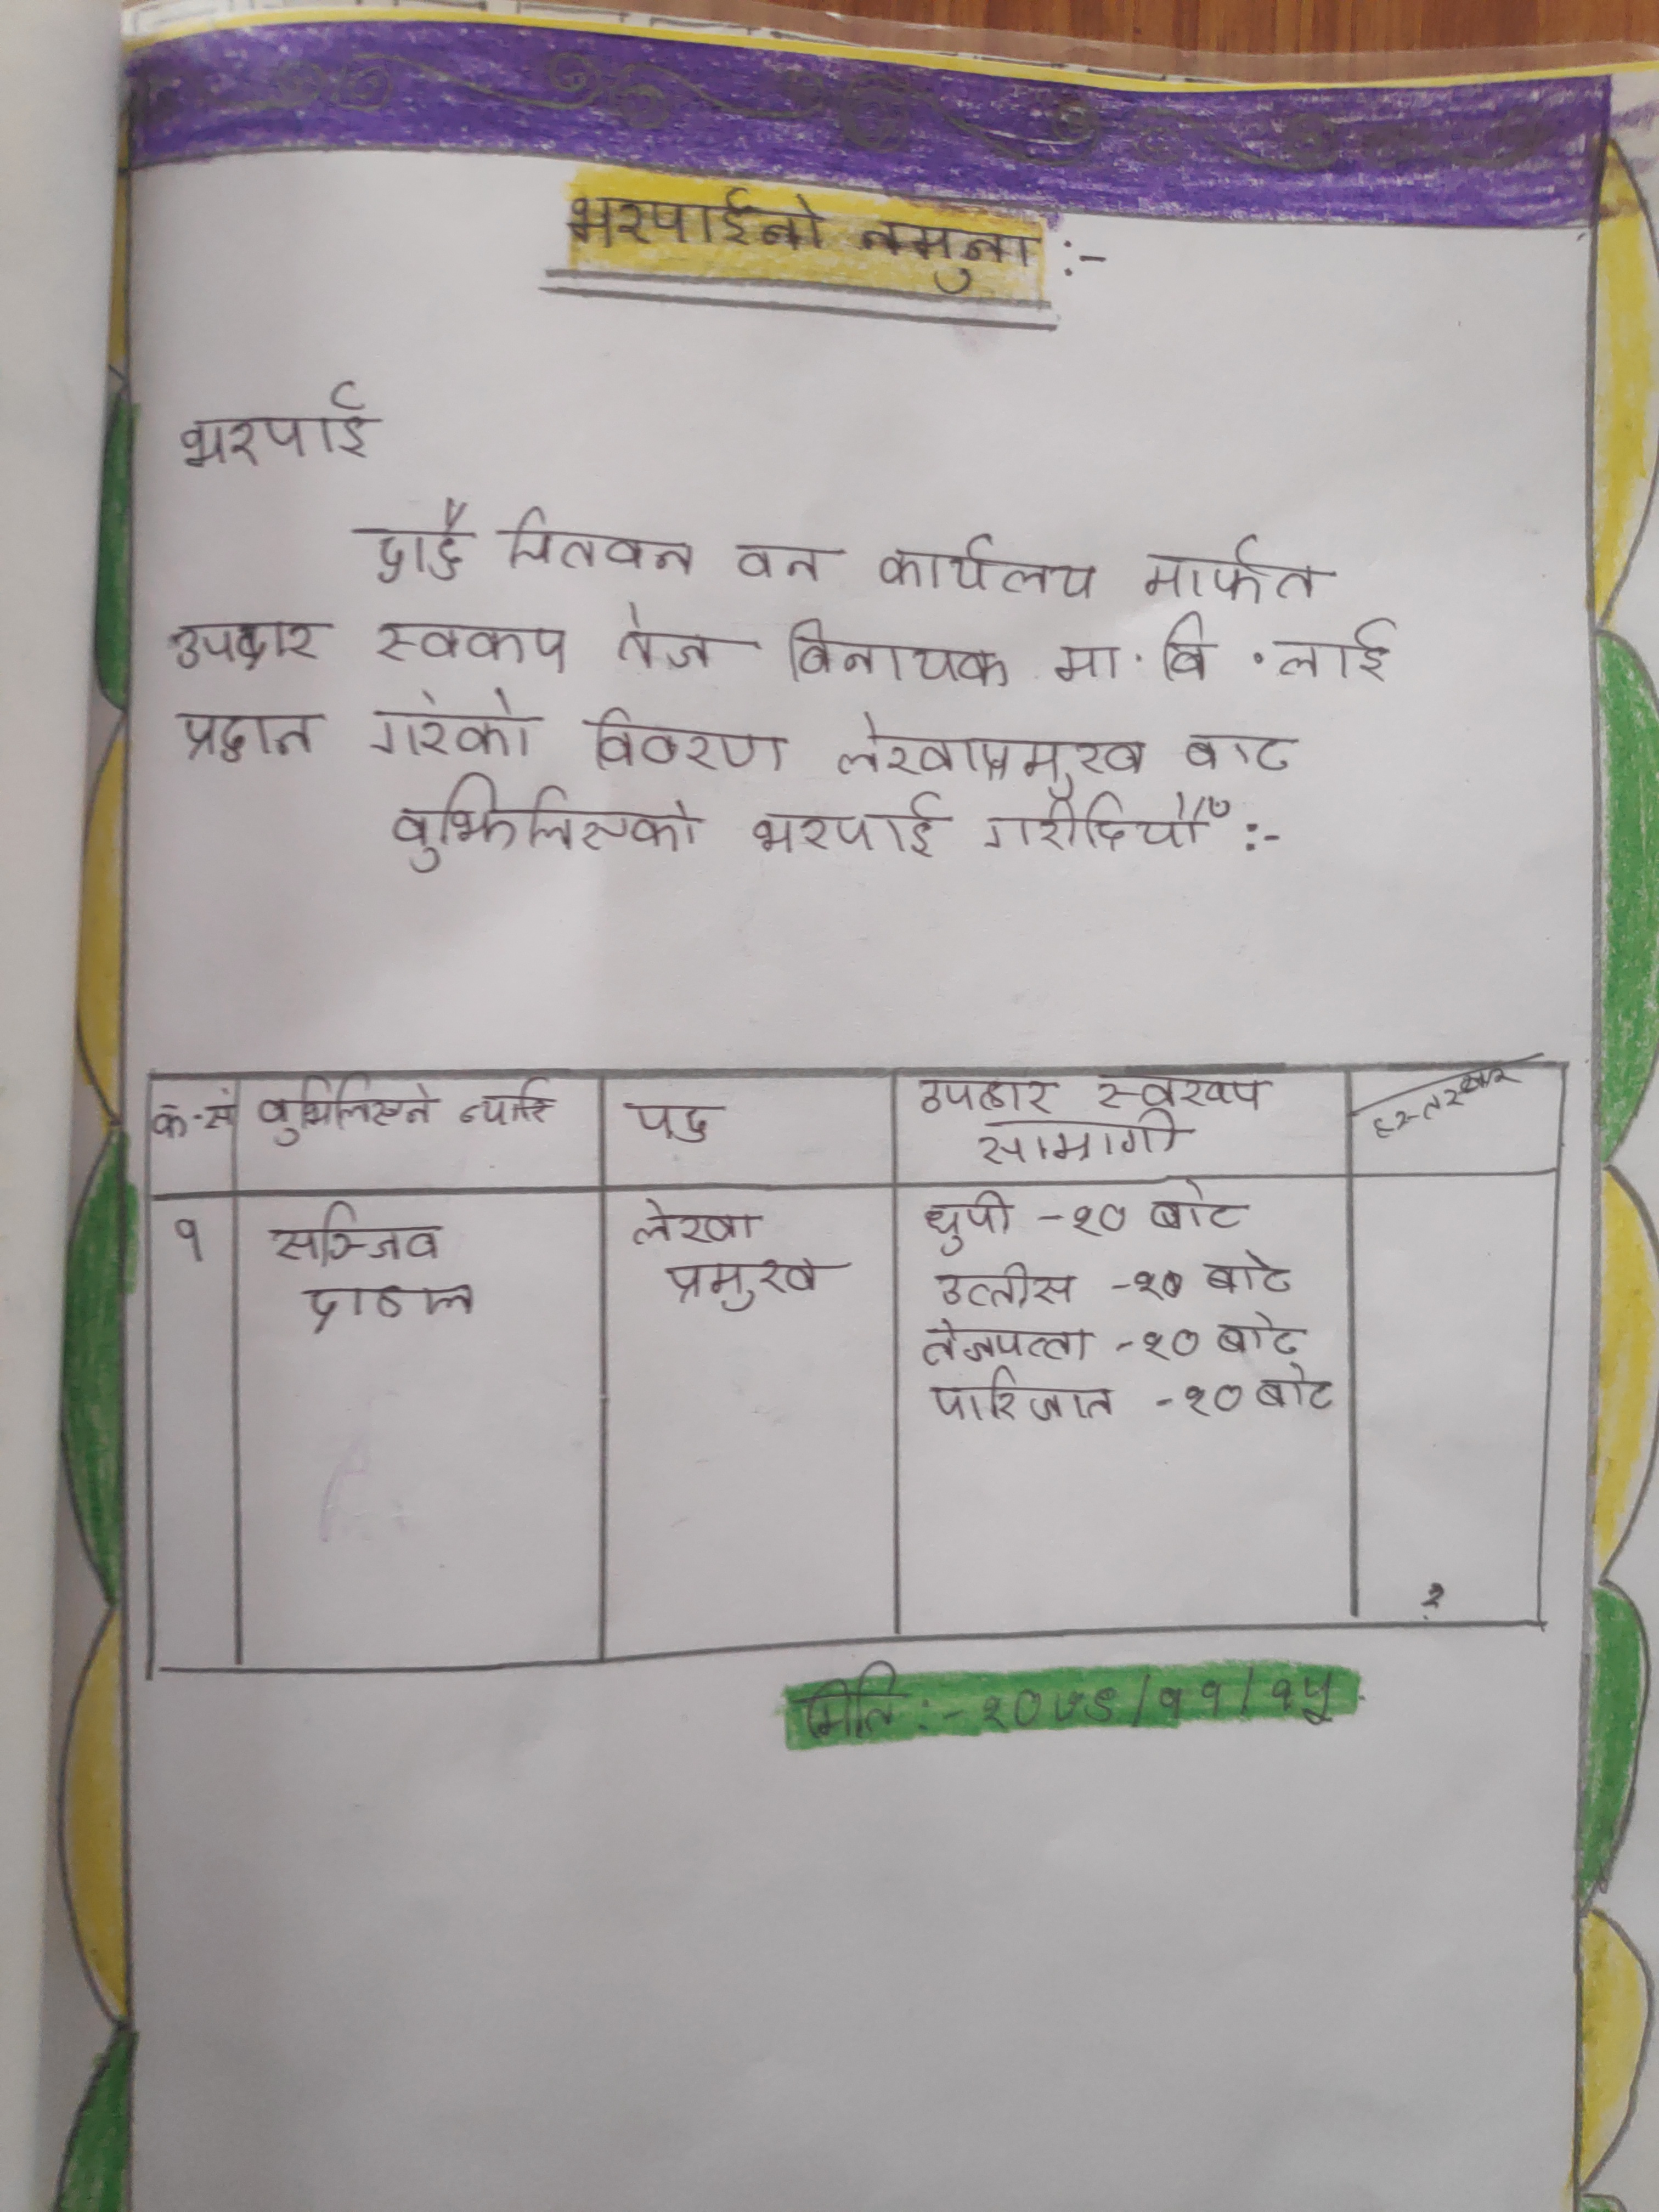 भरपाईको नमुना :-
भरपाई
द्वाडै चितवन वन कार्यलय मार्फत
उपहार स्वरूप तेज विनायक मा. बि. लाई
प्रदान गरेको विवरण लेखाप्रमुख बाट
बुझिलिएको भरपाई गरीदियौँ :-
क्र-सं बुझिलिएने व्यक्ति पद उपहार स्वरूप सामाग्री हस्ताक्षर
१ सञ्जिव दाहाल लेखा प्रमुख धुपी -२० बोट
उत्तीस -२० बोट
तेजपत्ता -२० बोट
पारिजात -२० बोट
मिति :- २०७९/११/१५